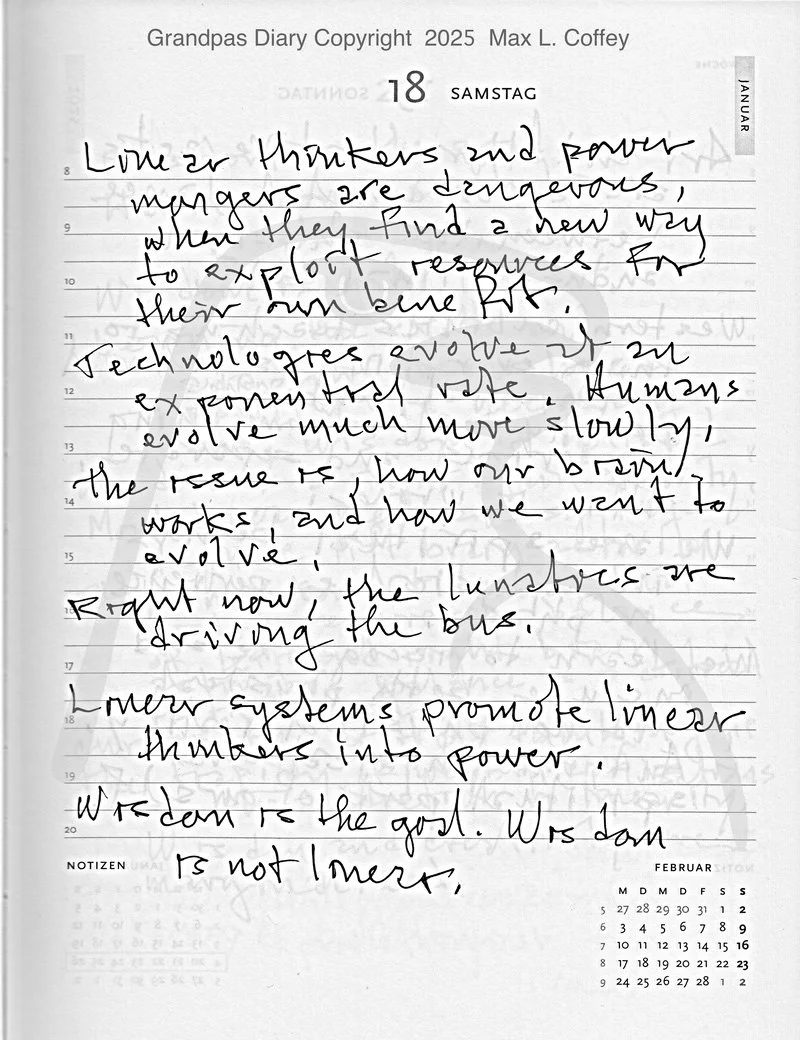 Grandpas Diary Copyright 2025 Max L. Coffey
18 SAMSTAG
JANUAR
Linear thinkers and power
mongers are dangerous,
when they find a new way
to exploit resources for
their own benefit.
Technologies evolve at an
exponential rate. Humans
evolve much more slowly,
the issue is, how our brain
works, and how we want to
evolve.
Right now, the lunatics are
driving the bus.
Linear systems promote linear
thinkers into power.
Wisdom is the goal. Wisdom
is not linear.
8
9
10
11
12
13
14
15
16
17
18
19
20
NOTIZEN
FEBRUAR
M D M D F S S
5 27 28 29 30 31 1 2
6 3 4 5 6 7 8 9
7 10 11 12 13 14 15 16
8 17 18 19 20 21 22 23
9 24 25 26 27 28 1 2